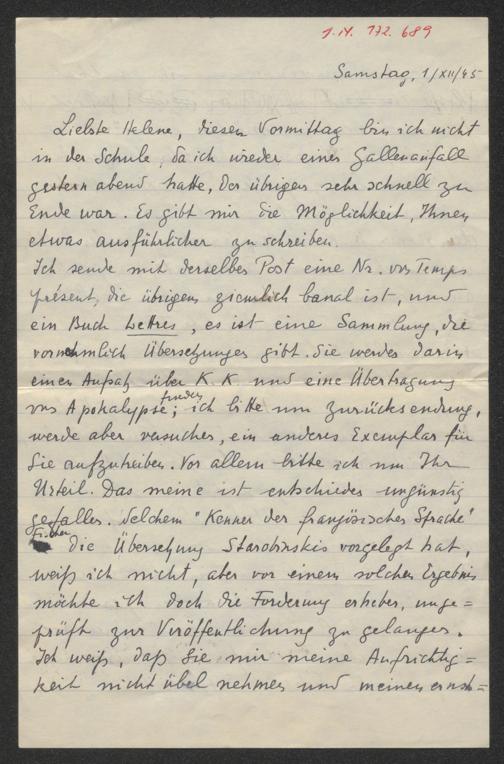 1.H. 172.689
Samstag, 1/XII/45
Liebste Helene, diesen Vormittag bin ich nicht
in der Schule, da ich wieder einen Gallenanfall
gestern abend hatte, der übrigens sehr schnell zu
Ende war. Es gibt mir die Möglichkeit, Ihnen
etwas ausführlicher zu schreiben.
Ich sende mit derselben Post eine Nr. von Temps
présent, die übrigens ziemlich banal ist, und
ein Buch Lettres, es ist eine Sammlung, die
vornehmlich Übersetzungen gibt. Sie werden darin
einen Aufsatz über K. K. und eine Übertragung
von Apokalypse finden; ich bitte um Zurücksendung,
werde aber versuchen, ein anderes Exemplar für
Sie aufzutreiben. Vor allem bitte ich um Ihr
Urteil. Das meine ist entschieden ungünstig
gefallen. Welchem "Kenner der französischen Sprache"
Ficker die Übersetzung Starobinskis vorgelegt hat,
weiß ich nicht, aber vor einem solchen Ergebnis
möchte ich doch die Forderung erheben, unge=
prüft zur Veröffentlichung zu gelangen.
Ich weiß, daß Sie mir meine Aufrichtig=
keit nicht übel nehmen und meinen ernst=